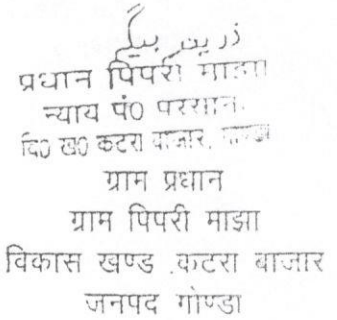 زرینہ بیگم
प्रधान पिपरी माझा
न्याय पं0 परसान
वि0 ख0 कटरा बाजार, गोण्डा
ग्राम प्रधान
ग्राम पिपरी माझा
विकास खण्ड .कटरा बाजार
जनपद गोण्डा